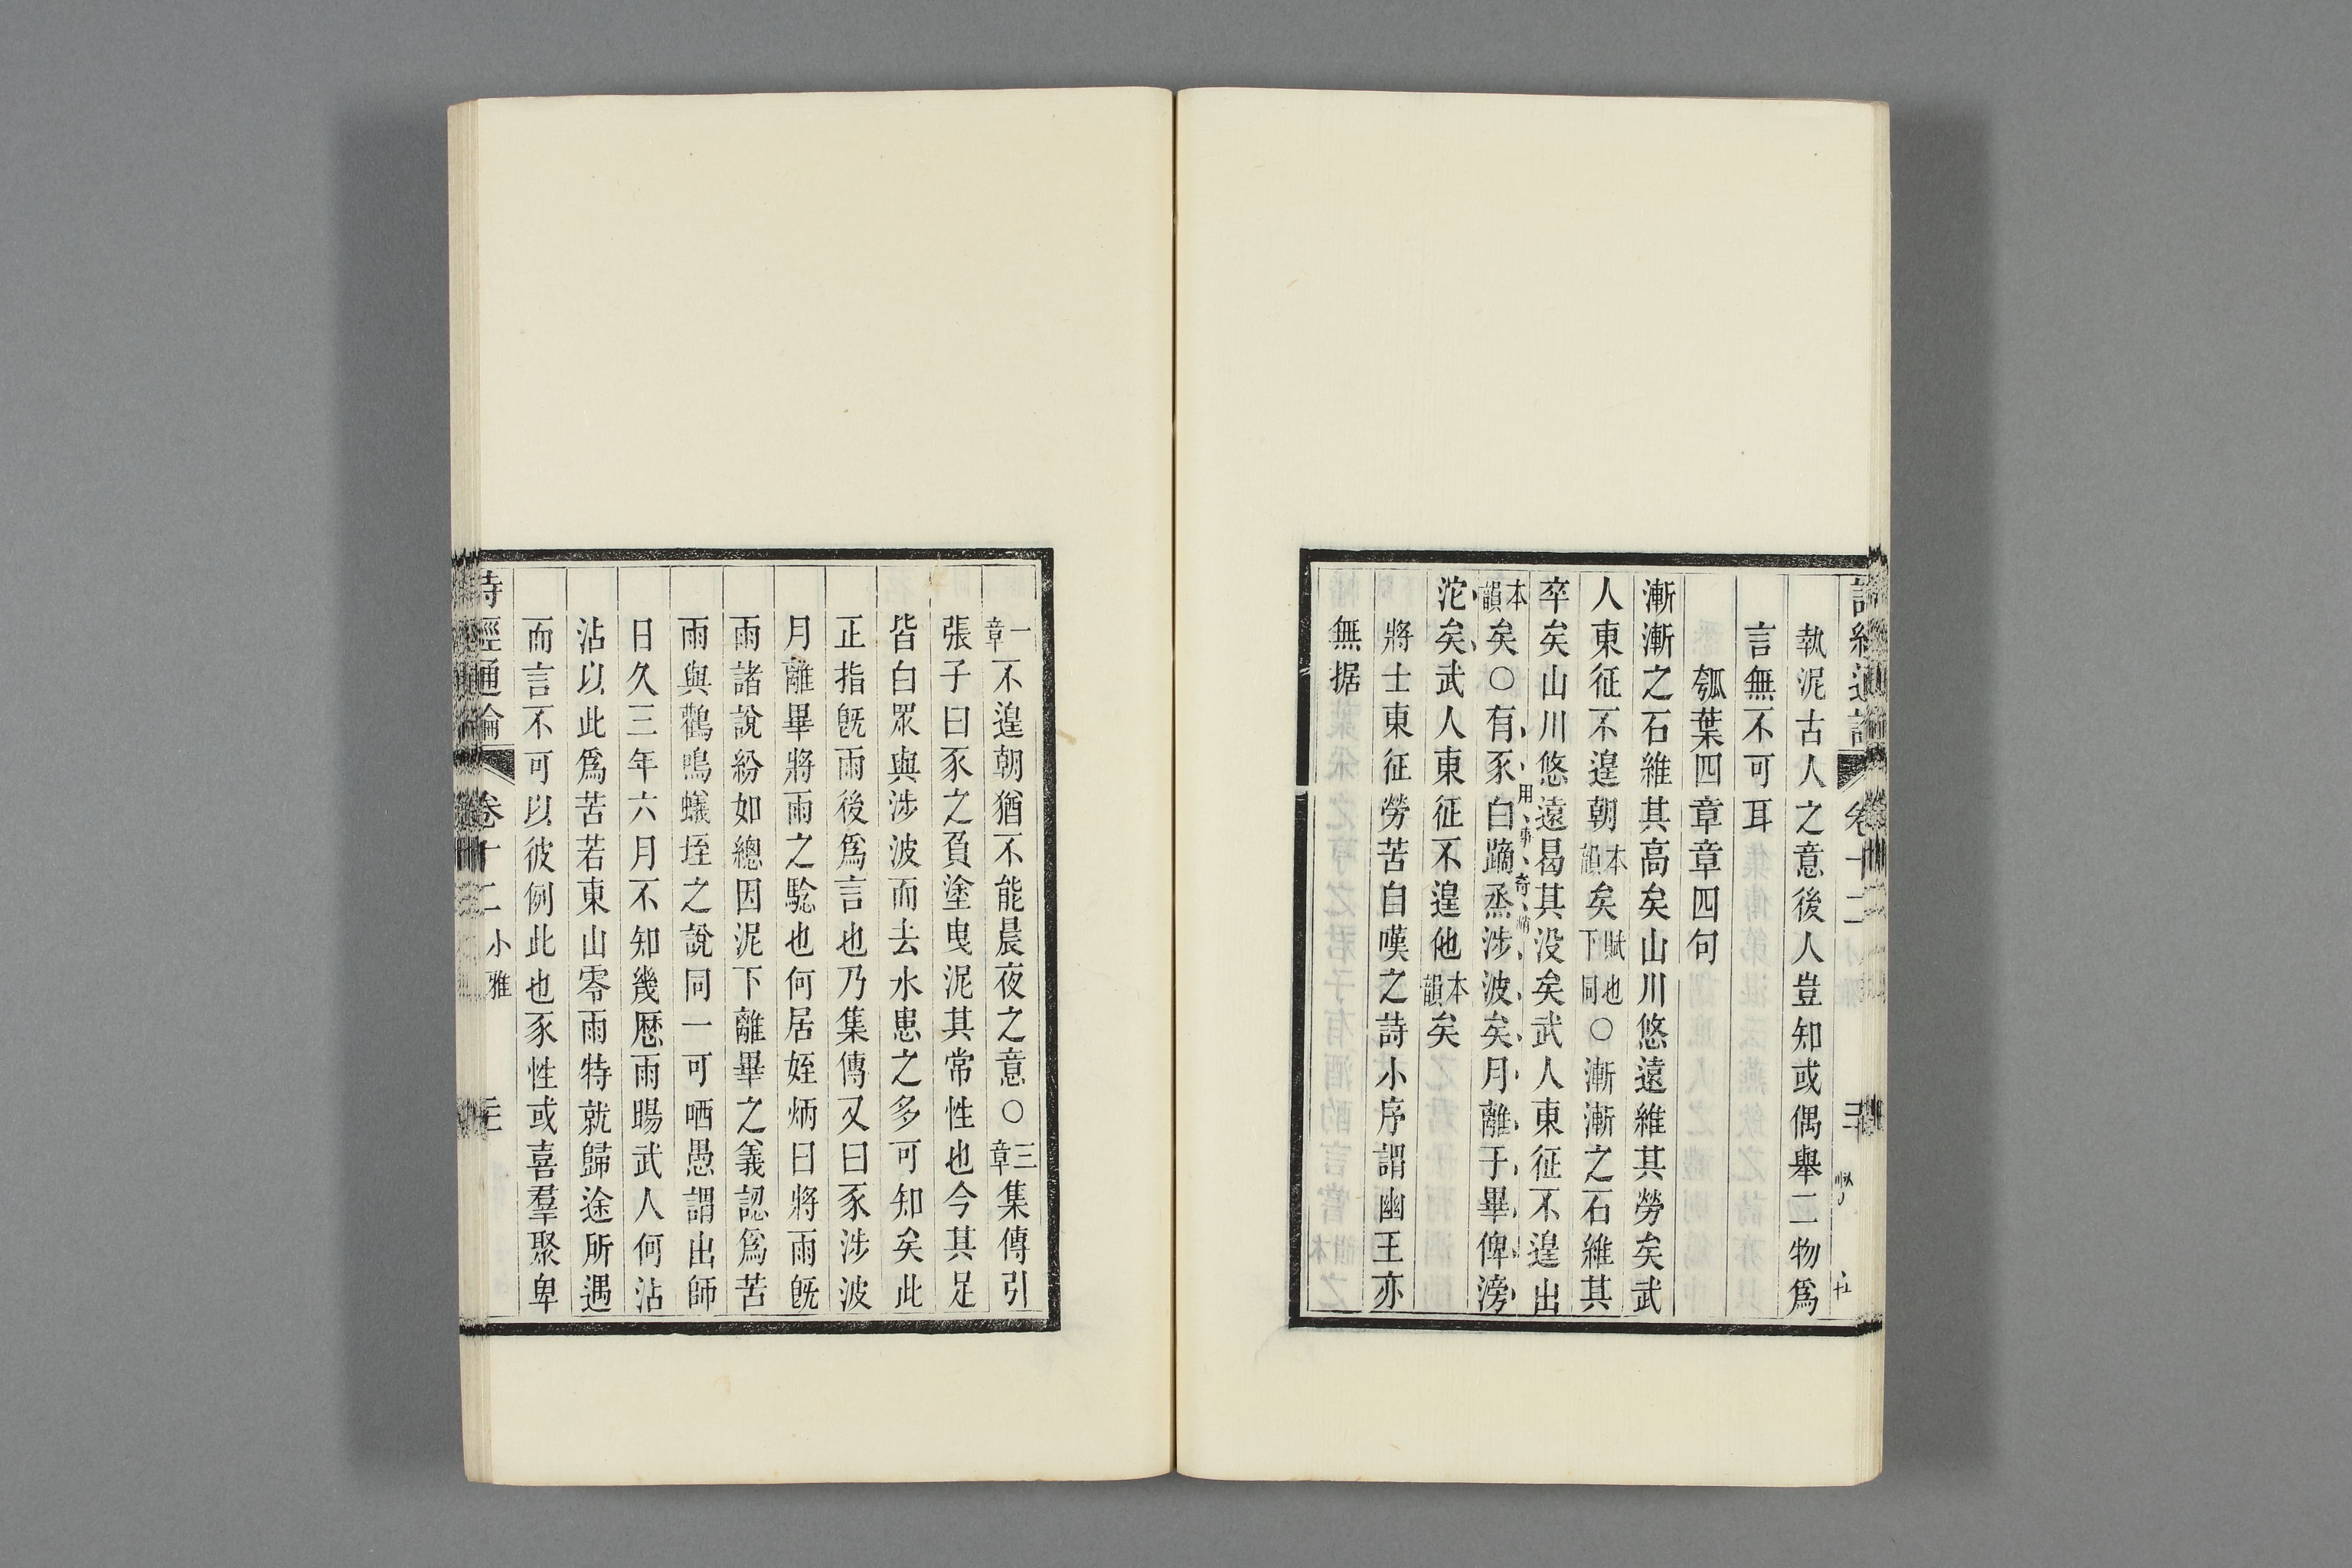 執泥古人之意後人豈知或偶舉二物爲
言無不可耳
瓠葉四章章四句
漸漸之石維其高矣山川悠遠維其勞矣武
人東征不遑朝本韻矣賦也下同○漸漸之石維其
卒矣山川悠遠曷其没矣武人東征不遑出
本韻矣○有豕白蹢烝涉波矣月離于畢俾滂
沱矣武人東征不遑他本韻矣
將士東征勞苦自嘆之詩小序謂幽王亦
無据
一章不遑朝猶不能晨夜之意○三章集傳引
張子曰豕之負塗曳泥其常性也今其足
皆白眾與涉波而去水患之多可知矣此
正指旣雨後爲言也乃集傳又曰豕涉波
月離畢將雨之騐也何居姪炳曰將雨旣
雨諸說紛如總因泥下離畢之義認爲苦
雨與鸛鳴蟻垤之說同一可哂愚謂出師
日久三年六月不知幾歷雨暘武人何沾
沾以此爲苦若東山零雨特就歸途所遇
而言不可以彼例此也豕性或喜羣聚卑
詩經通論 卷十二 小雅